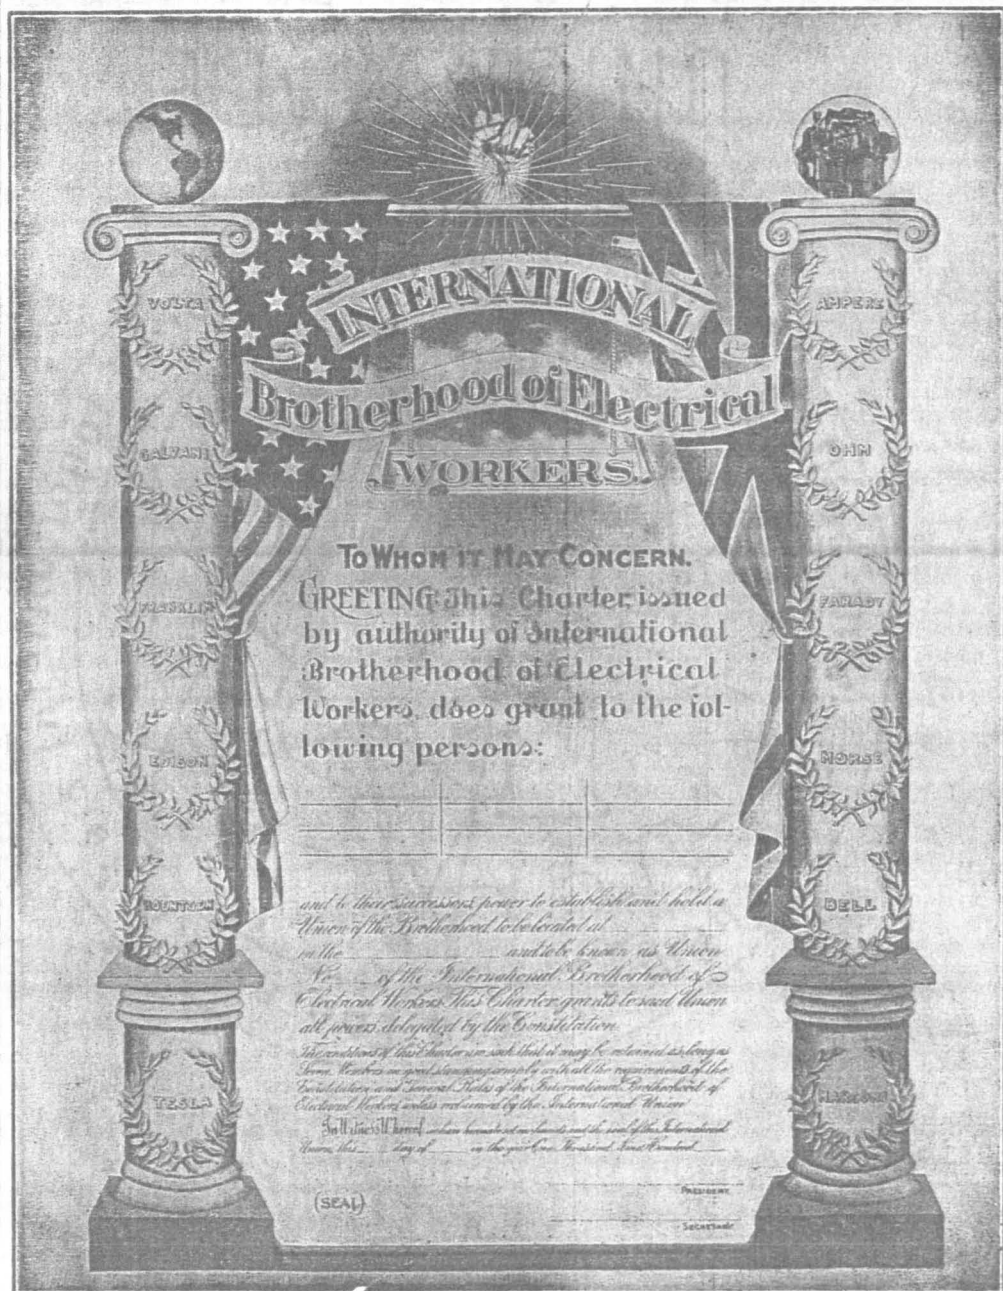 INTERNATIONAL
Brotherhood of Electrical
WORKERS.
VOLTA
GALVANI
FRANKLIN
EDISON
ROENTGEN
TESLA
AMPERE
OHM
FARADY
MORSE
BELL
MARCONI
TO WHOM IT MAY CONCERN.
GREETING: This Charter, issued
by authority of International
Brotherhood of Electrical
Workers, does grant to the fol-
lowing persons:
and to their successors power to establish and hold a
Union of the Brotherhood, to be located at
in the and to be known as Union
No. of the International Brotherhood of
Electrical Workers. This Charter grants to said Union
all powers delegated by the Constitution.
The conditions of this Charter are such that it may be retained as long as
Members in good standing comply with all the requirements of the
Constitution and General Rules of the International Brotherhood of
Electrical Workers unless redeemed by the International Union
In Witness Whereof, we have hereunto set our hands and the seal of the International
Union, this day of in the year One Thousand Nine Hundred
(SEAL)
PRESIDENT.
SECRETARY.